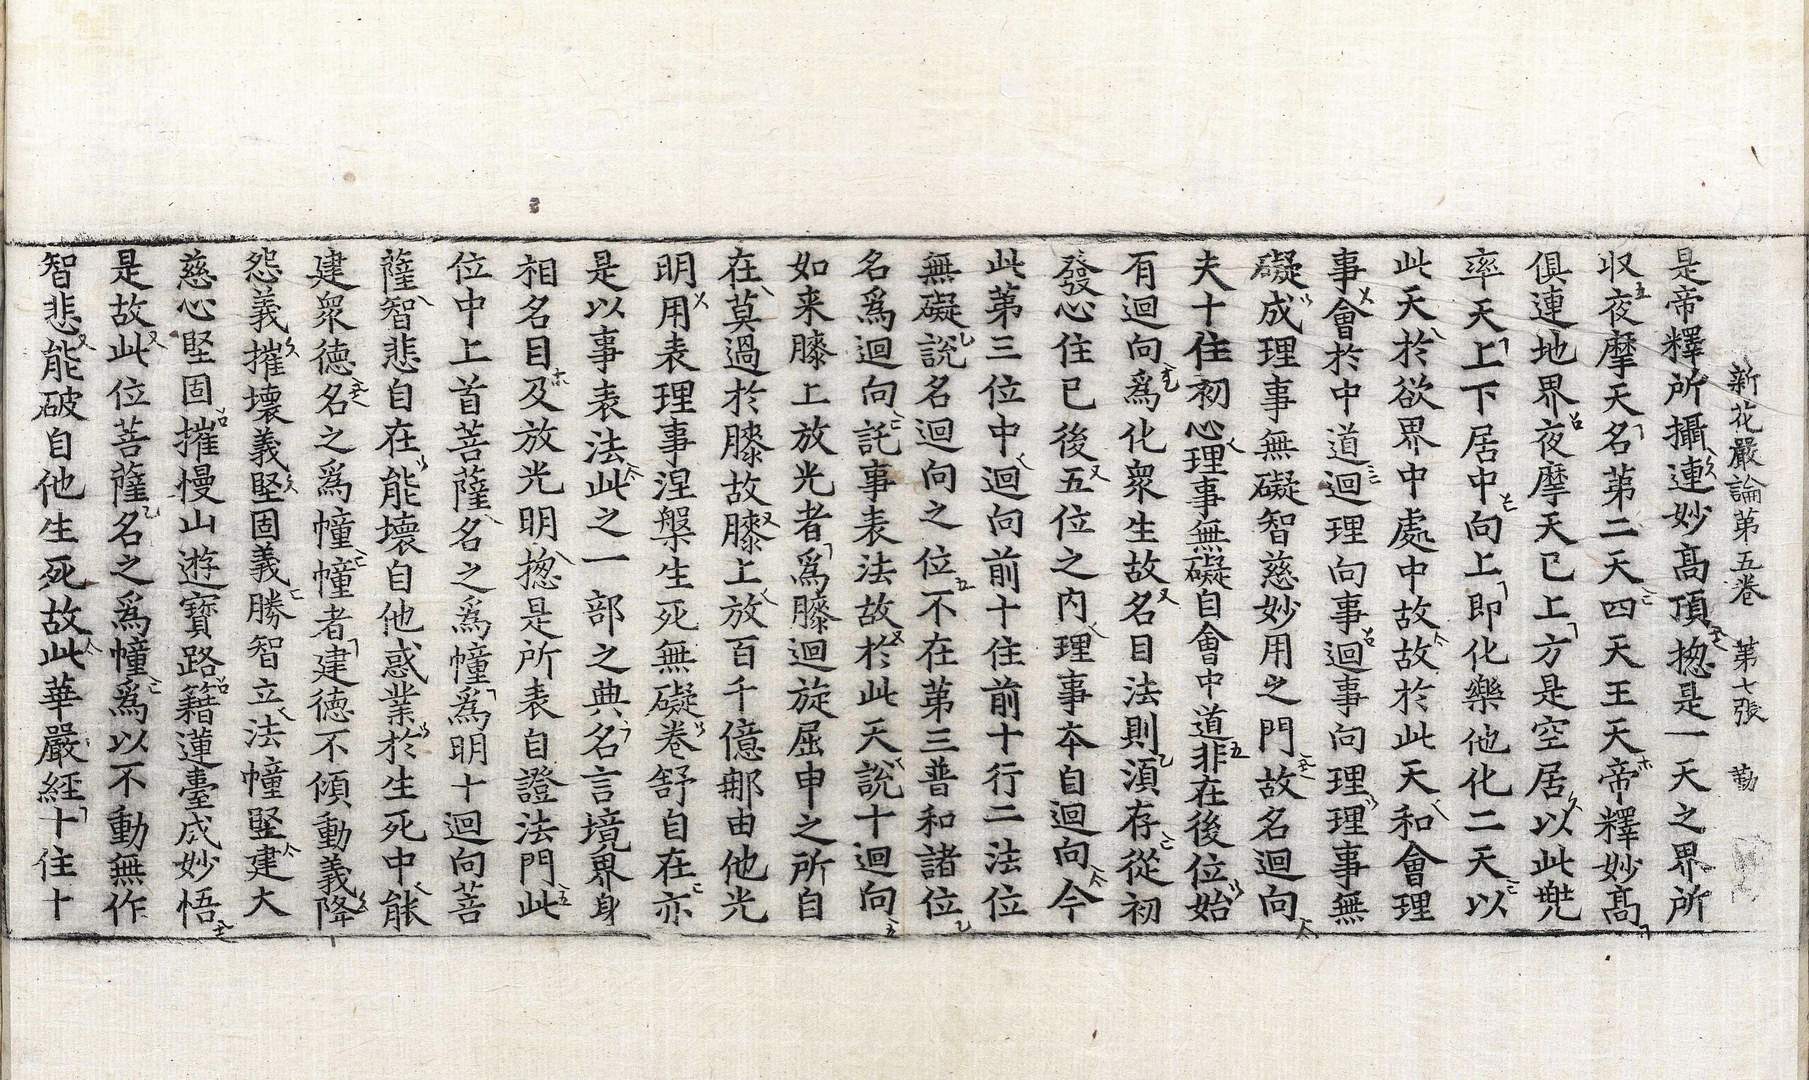 新花嚴論第五卷 第七張 勤
是帝釋所攝連妙高頂揔是一天之界所
収夜摩天名第二天四天王天帝釋妙高
俱連地界夜摩天已上方是空居以此兠
率天上下居中向上即化樂他化二天以
此天於欲界中處中故故於此天和會理
事會於中道迴理向事迴事向理理事無
礙成理事無礙智慈妙用之門故名迴向
夫十住初心理事無礙自會中道非在後位始
有迴向爲化衆生故名目法則湏存從初
發心住已後五位之内理事夲自迴向今
此第三位中迴向前十住前十行二法位
無礙說名迴向之位不在第三普和諸位
名爲迴向託事表法故於此天說十迴向
如来膝上放光者爲膝迴旋屈申之所自
在莫過於膝故膝上放百千億那由他光
明用表理事涅槃生死無礙卷舒自在亦
是以事表法此之一部之典名言境界身
相名目及放光明揔是所表自證法門此
位中上首菩薩名之爲幢爲明十迴向菩
薩智悲自在能壞自他惑業於生死中能
建衆德名之爲幢幢者建德不傾動義降
怨義摧壞義堅固義勝智立法幢堅建大
慈心堅固摧慢山遊寳路籍蓮臺成妙悟
是故此位菩薩名之爲幢爲以不動無作
智悲能破自他生死故此華嚴經十住十